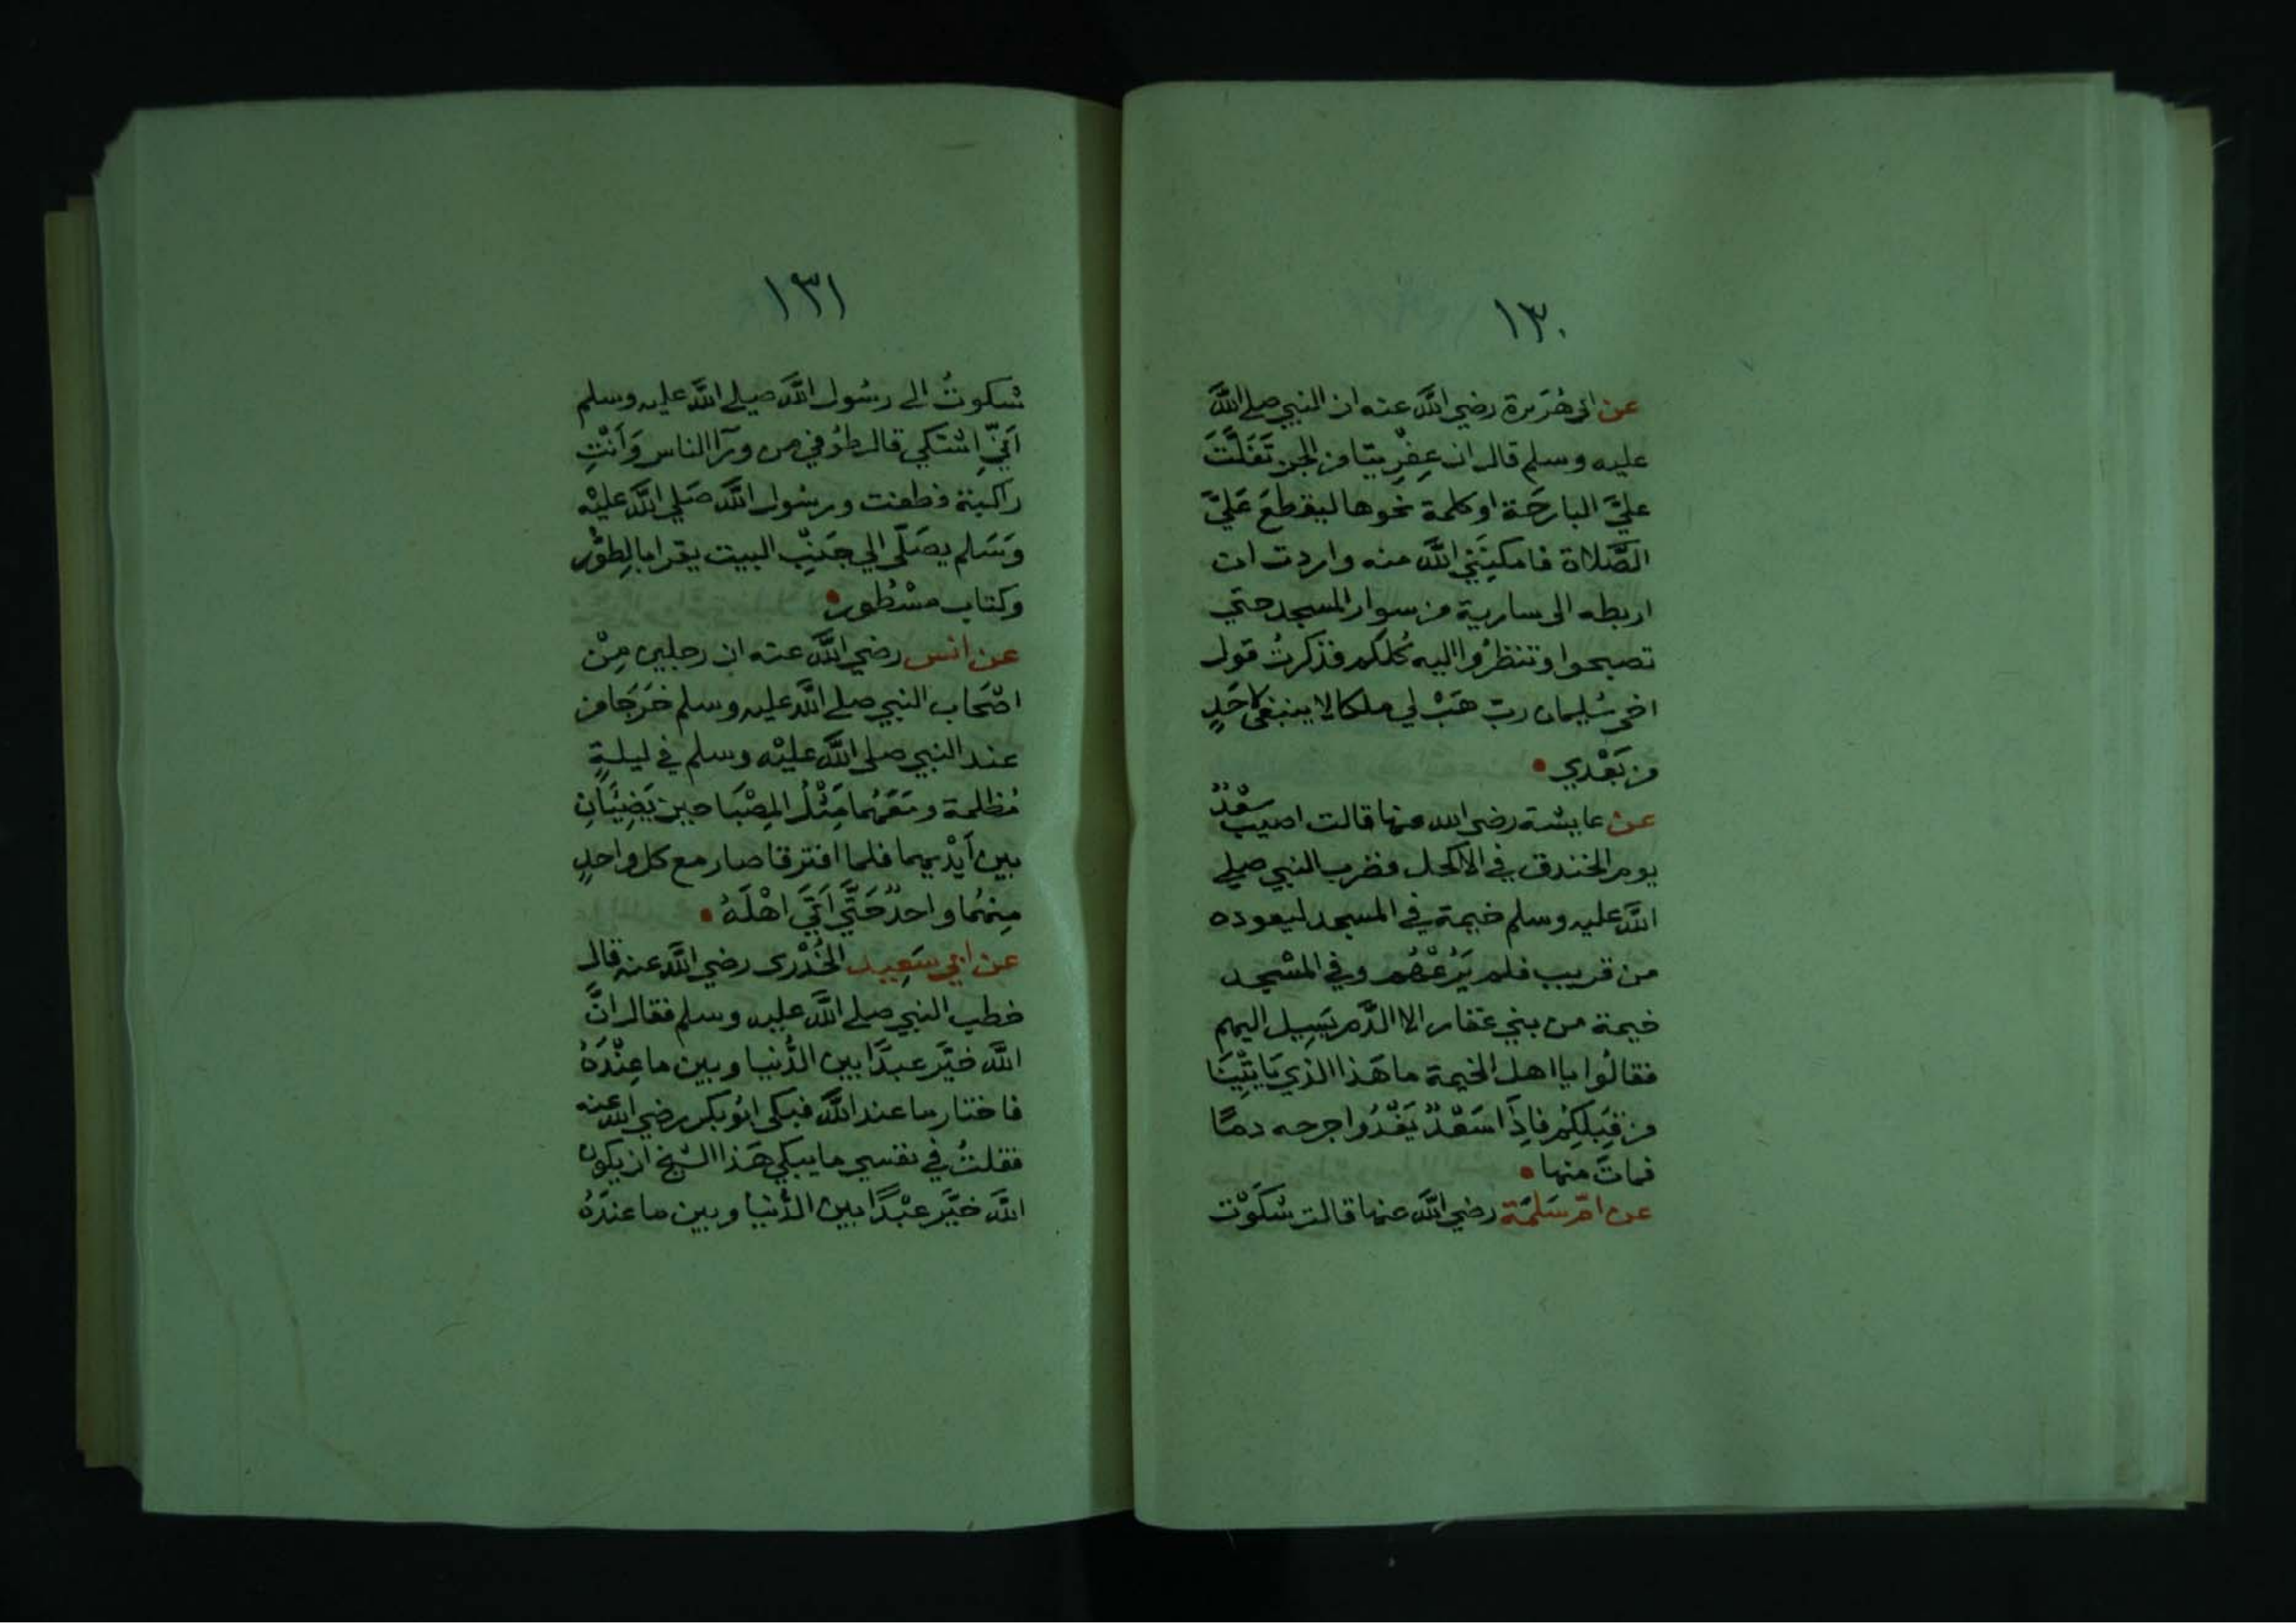 ١٣٠
عن ابى هُرَيرة رضي اللَّه عنه ان النبي صلي اللَّه
عليه وسلم قال ان عِفْرِيتًا من الجن تَفَلَّتَ
عليَّ البارحَة او كلمة نحوها ليقطعَ عَليَّ
الصَّلاة فامكنِنَي اللَّه منه واردت ان
اربطه الى سارية من سوار المسجد حتي
تصبحوا وتنظرُوا اليه كُلكم فذكرتُ قول
اخى سُليمان ربّ هَبْ لي ملكا لا ينبغى لاحَدٍ
من بَعْدي •
عن عايشة رضى الله عنها قالت اصيب سَعْدٌ
يوم الخندق في الاكحل فضرب النبي صلي
اللَّه عليه وسلم خيمة في المسجد ليعوده
من قريب فلم يَرُعْهُم وفي المسْجد
خيمة من بني غفار الا الدَّم يَسِيل اليهم
فقالُوا يا اهل الخيمة ما هَذا الذي يَاتِينَا
من قِبَلِكُم فاِذَا سَعْدٌ يَغْدُوا جرحه دمًا
فماتَ منها •
عن امّ سَلَمَة رضي اللَّه عنها قالت شكَوْت
١٣١
شكوتُ الى رسُول اللَّه صلي اللَّه عليه وسلم
اَنّيِ اشتكي قال طوُفي من ورآ الناس وَاَنْتِ
راكبة فطفت ورسُول اللَّه صَلي اللَّه عليْه
وَسَلم يصَلّى الي جَنبِ البيت يقرا بالِطوُّر
وكتاب مسْطُور •
عن انس رضي اللَّه عنه ان رجلين مِنْ
اصْحَاب النبي صلي اللَّه عليه وسلم خَرَجَا من
عند النبي صلى اللَّه عليْه وسلم في ليلةٍ
مُظلمة ومَعَهُما مِثْلُ المِصْبَاحين يَضِيئَانِ
بين اَيْديهما فلما افترقا صار مع كل واحدٍ
مِنهُما واحدٌ حَتَّي اَتَي اهْلَهُ •
عن ابي سَعِيد الخُدْرى رضي اللَّه عنه قال
خطب النبي صلي اللَّه عليه وسلم فقال انَّ
اللَّه خيَّر عبدًا بين الدُّنيا وبين ما عِنْدَهُ
فاختار ما عند اللَّه فبكى ابُو بكر رضي اللَّه عنه
فقلتُ في نفسي ما يبكي هَذا الشيخ ان يكون
اللَّه خيَّر عبْدًا بين الدُّنيا وبين ما عندَهُ